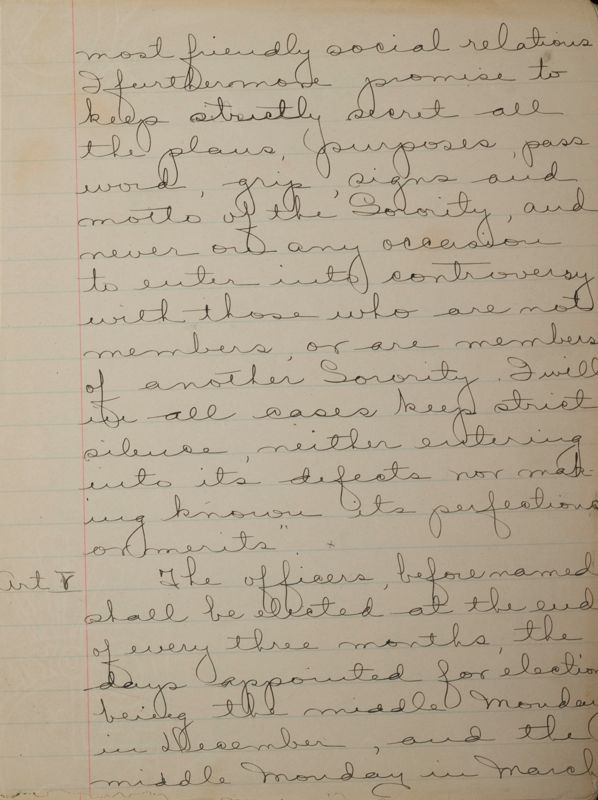 most friendly social relations
I furthermore promise to
keep strictly secret all
the plans, purposes, pass
word, grip, signs and
motto of the Sorority, and
never on any occasion
to enter into controversy
with those who are not
members, or are members
of another Sorority. I will
in all cases keep strict
silence, neither entering
into its defects nor mak-
ing known its perfections
or merits".
Art V The officers, before named
shall be elected at the end
of every three months, the
days appointed for election
being the middle Monday
in December, and the
middle Monday in March